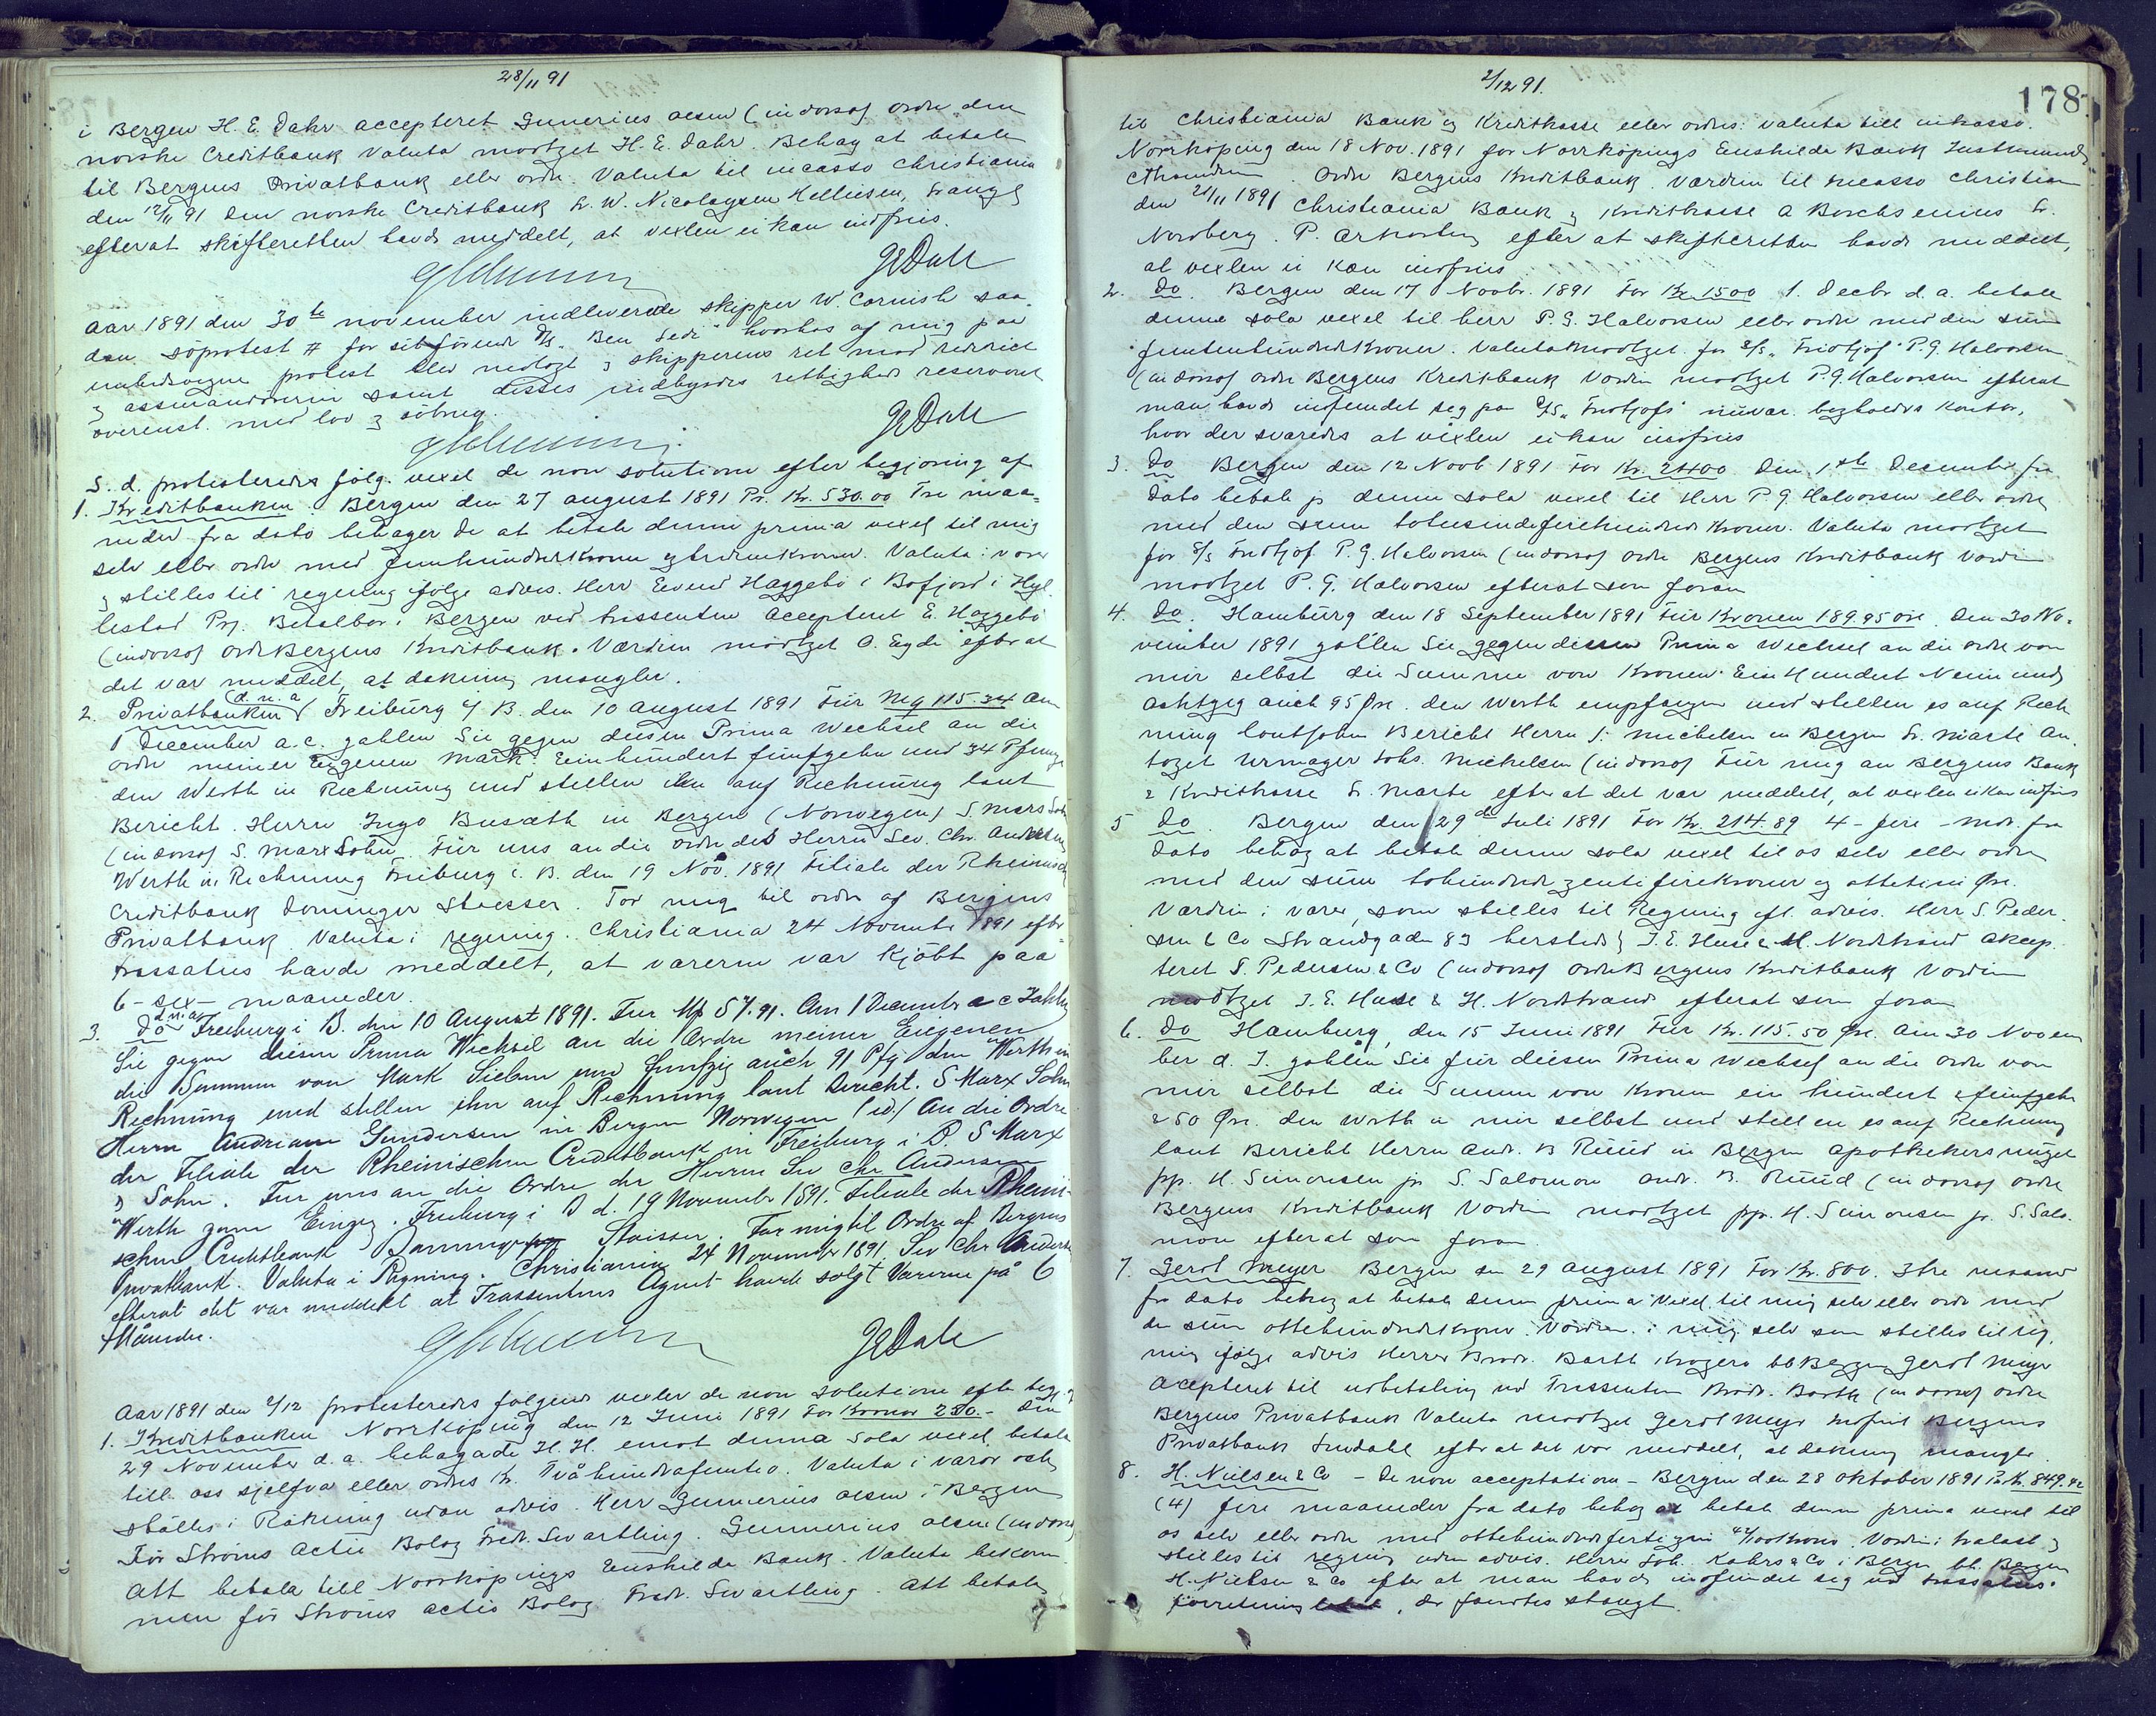 28/11 91
i Bergen H. E. Dahr accepteret Gunerius Olsen (indorsof Ordre den
norske Creditbank Valuta modtget H. E. Dahr. Behag at betale
til Bergens Privatbank eller ordre. Valuta til incasso Christiania
den 12/11 91 Den norske Creditbank Fr. W. Nicolaysen Kelliesen,
efterat skifteretten havde meddelt, at vexlen ei kan indfries.
GEDahl
Aar 1891 den 30te november indleverede skipper W. Cornish saa-
dan söprotest # for sit förende D/s. "Ben Ledi" hvorhos af mig paa
embedsvegne protest blev nedlagt og skipperens ret mod rederiet
og assurandörerne samt disses indbyrdes rettigheder reserveret
overenst. med lov og sövng.
GEDahl
S. d. protesteredes fölg. vexel de non solutione efter begjæring af
1. Kreditbanken. Bergen den 27 august 1891 Pr. Kr. 530.00 Tre maa-
neder fra dato behager De at betale denne prima vexel til mig
selv eller ordre med femhundredekroner og tredivekroner. Valuta i varer
og stilles til regning ifølge advis. Herr Eivend Haggebö i Bofjord i Hyl-
lestad Prj. Betalbar i Bergen ved trassenten accepteret E. Haggebö
(indorsof Ordre Bergens Kreditbank. Værdien modtget O. Eyde efterat
det var meddelt, at dækning mangler.
2. Privatbanken (d. n. a) Freiburg i/ B. den 10 august 1891 Für Mq 115.34 Am
1 December a. c. zahlen Sie gegen diesen Prima Wechsel an die
ordre meiner Eigenen Mark: Einhundert fünfzehn und 34 Pfennge
den Werth in Rechnung und stellen ihn auf Rechnung laut
Bericht. Herrn Ingo Busæth in Bergen (Norwegen) S. Marx Sohn
(indorsof S. Marx Sohn. Für uns an die Ordre des Herrn Sev. Chr. Andersen
Werth in Rechnung Freiburg i. B. den 19 Nov. 1891 Filiale der Rheinisch
Creditbank Dominger Stoesser. For mig til ordre af Bergens
Privatbank Valuta i regning. Christiania 24 November 1891 efter
trassatus havde meddelt, at varerne var kjöbt paa
6 - sex - maaneder.
3. do d.n.a. Freiburg i B. den 10 August 1891. Für Mp 57.91. Am 1 December a c Zahlen
Sie gegen diesen Prima Wechsel an die Ordre meiner Eigenen
die Summen von Mark Sieben und funfzig auch 91 Pfg den Werth in
Rechnung und stellen ihn auf Rechnung laut Bericht. S Marx Sohn
Herrn Andriam Gundersen in Bergen Norwegen (id) An die Ordre
der Filiale der Rheinischen Creditbank in Freiburg i B. S Marx
& Sohn. Für uns an die Ordre der Herrn Sev Chr Andersen
Werth zum Einzg. Freiburg i B d. 19 November 1891. Filiale der Rheini-
schen Creditbank Stoisser. For mig til Ordre af Bergens
Privatbank. Valuta i Regning. Christiania 24 November 1891. Sev Chr Andersen
efterat det var meddelt at Trassentens Agent havde solgt Varerne på 6
Måneder.
GEDahl
Aar 1891 den 2/12 protesteredes fölgende vexler de non solutione efter begj. af
1. Kreditbanken Norrköping den 12 Juni 1891 For Kronor 250.- Den
29 November d. a. behagade H. H. emot denna Sola vexel, betala
till oss sjelfva eller ordres Kr. Tvåhundrafemtio. Valuta i varor och
ställes i Räkning utan advis. Herr Gunnerius Olsen i Bergen
För Ströms Actie Bolag Fredr. Swartling. Gunnerius Olsen (indorsof
Att betala till Norrköpings Enskilda Bank. Valuta bekom-
men för Ströms Actie Bolag Fredr. Swartling. Att betala
2/12 91.
178
til Christiania Bank og Kreditkasse eller ordres. valuta till inkasso.
Norrköping den 18 Nov. 1891 for Norrköpings Enskilda Bank
Ordre Bergens Kreditbank. Værdien til incasso Christiania
den 21/11 1891 Christiania Bank og Kreditkasse A Borchsenius Fr.
Nordberg. P. efter at skifteretten havde meddelt,
at vexlen ei kan indfries
2. Do. Bergen den 17 Novbr. 1891 For Kr. 1500 1. Decbr d. a. betale
denne sola vexel til herr P. G. Halvorsen eller ordre med den sum
femtenhundredekroner. Valuta modtget. for D/s. "Fridtjof" P. G. Halvorsen
(indorsof ordre Bergens Kreditbank Værdien modtget P. G. Halvorsen efterat
man havde indfundet seg paa D/S. "Fridtjofs" nuvær. bestyrers kontor,
hvor der svaredes at vexlen ei kan indfries
3. Do Bergen den 12 Novb 1891 For Kr. 2400 Den 1ste December fra
Dato betale jeg denne sola vexel til Herr P. G. Halvorsen eller ordre
med den sum totusindefirehundrede Kroner. Valuta modtget
for D/s Fridtjof P. G. Halvorsen (indorsof Ordre Bergens Kreditbank Værdien
modtget P. G. Halvorsen efterat som foran
4. Do. Hamburg den 18 September 1891 Für Kronen 189.95 öre. Den 30 No-
vember 1891 zahlen Sie gegen diesen Prima Wechsel an die ordre von
mir selbst die Summe von Kronen Ein Hundert Neun und
achtzig auch 95 Öre. den Werth empfangen und stellen es auf Rech-
nung laut Bericht Herrn J. Michelsen in Bergen Fr. Marte An-
taget Urmager Johs. Michelsen (indorsof Für mig an Bergens Bank
& Kreditkasse Fr. Marte efter at det var meddelt, at vexlen ei kan indfries
5 Do. Bergen den 29de Juli 1891 For Kr. 214.89 4 - fire - mdr. fra
Dato behag at betale denne sola vexel til os selv eller ordre
med den sum tohundrede fireKroner og ottetini Öre.
Værdien i varer, som stilles til Regning efl. advis. Herr S. Peder-
sen & Co Strandgaden 83 hersteds J. E. Huse & H. Nordstrand accep-
teret S. Pedersen & Co (indorsof ordre Bergens Kreditbank Værdien
modtget J. E. Huse & H. Nordstrand efterat som foran
6. Do Hamburg, den 15 Juni 1891 Für Kr. 115.50 Öre. Am 30 Novem
ber d. J. zahlen Sie für diesen Prima Wechsel an die Ordre von
mir selbst die Summe von Kronen ein hundert & fünfzehn
& 50 Öre. den Werth a mir selbst und stellen es auf Rechnung
laut Bericht Herrn Andr. B Ruud in Bergen
pp. H. Simonsen jr S. Salomon Andr. B. Ruud (indorsof Ordre
Bergens Kreditbank Værdien modtget pp. H. Simonsen jr. S. Salo-
mon efterat som foran.
7. Gerdt Meyer Bergen den 29 August 1891 For Kr. 800. 3 tre maaned
fra dato behag at betale denne prima Vexel til mig selv eller ordre med
den sum ottehundredekroner. Værdien i mig selv som stilles til reg-
ning ifölge advis Herrer Brødr. Barth Kragerö bb Bergen Gerdt Meyer
Acepteret til udbetaling ved Trassenten Brødr. Barth (indorsof Ordre
Bergens Privatbank Valuta modtget Gerdt Meyer Bergens
Privatbank efterat det var meddelt, at dækning mangler.
8. H. Nielsen & Co - De non acceptation - Bergen den 28 Oktober 1891 Pr Kr. 849.42
(4) fire maaneder fra dato behag at betale denne prima vexel til
os selv eller ordre med ottehundredefertigni 42/100 Kroner. Værdien i trælast og
stilles til regning uden advis. Herrer Joh. Kahrs & Co i Bergen bb. Bergen
H. Nielsen & Co efter at man havde indfundet sig ved trassatus.
forretning, der fandtes stængt.